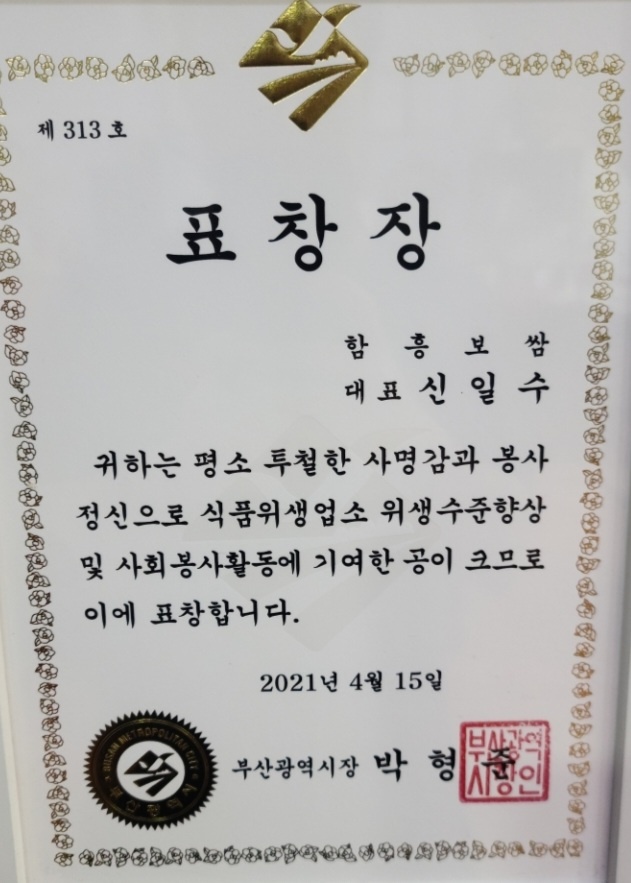 제 313 호
표 창 장
함 흥 보 쌈
대 표 신 일 수
귀하는 평소 투철한 사명감과 봉사
정신으로 식품위생업소 위생수준향상
및 사회봉사활동에 기여한 공이 크므로
이에 표창합니다.
2021년 4월 15일
BUSAN METROPOLITAN CITY
부산광역시
부산광역시장 박 형 준
부산광역
시장인